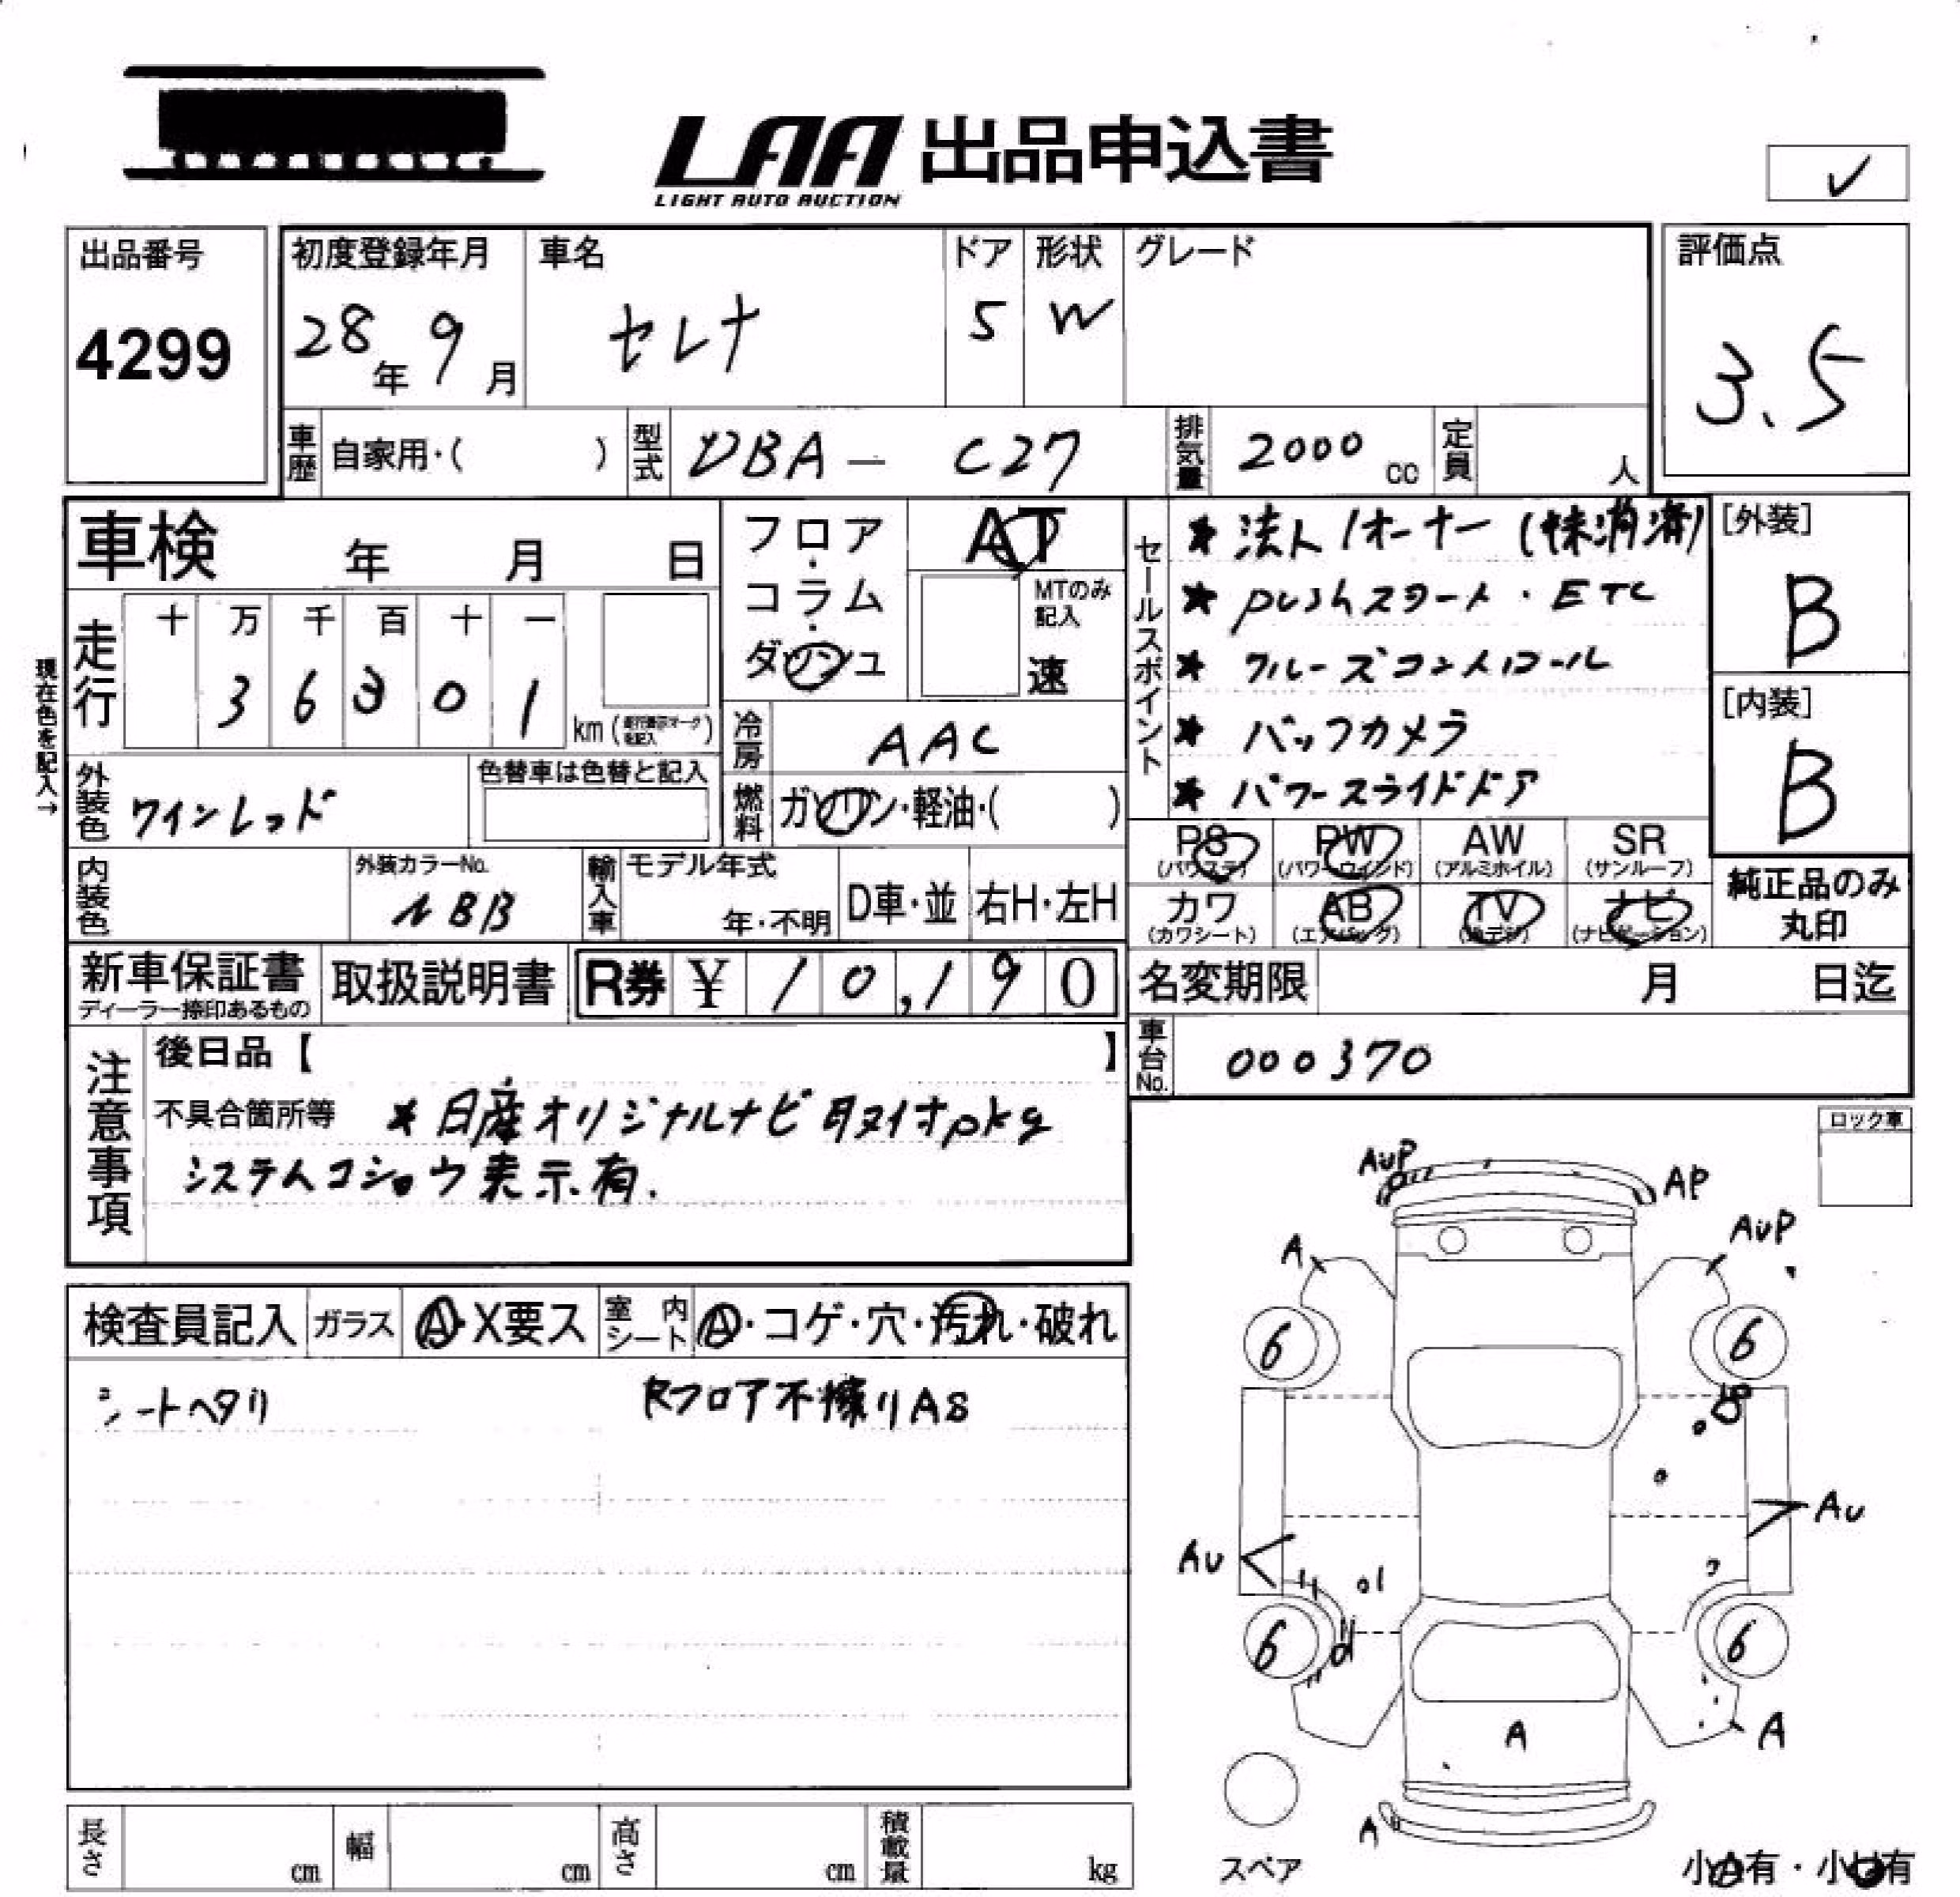 LAA 出品申込書
LIGHT AUTO AUCTION
出品番号
4299
初度登録年月
28年 9月
車名
セレナ
ドア
5
形状
W
グレード
評価点
3.5
車歴 自家用・( )
型式 DBA - C27
排気量 2000 cc
定員 人
車検 年 月 日
走行
十 万 千 百 十 一
3 6 3 0 1 km
現在色を記入→
フロア・コラム・ダッシュ
AT
MTのみ記入
速
冷房 AAC
燃料 ガソリン・軽油・( )
外装色 ワインレッド
色替車は色替と記入
内装色
外装カラーNo.
NBB
輸入車
モデル年式
年・不明
D車・並
右H・左H
セールスポイント
★ 法人1オーナー (抹消済)
★ pushスタート・ETC
★ クルーズコントロール
★ バックカメラ
★ パワースライドドア
[外装]
B
[内装]
B
PS (パワステ)
PW (パワーウインド)
AW (アルミホイル)
SR (サンルーフ)
カワ (カワシート)
AB (エアバッグ)
TV (地デジ)
ナビ (ナビゲーション)
純正品のみ丸印
新車保証書
ディーラー捺印あるもの
取扱説明書
R券 ¥ 10,190
名変期限 月 日迄
車台No. 000370
注意事項
後日品【 】
不具合箇所等 ★日産オリジナルナビ取付pkg
システムコショウ表示有.
ロック車
検査員記入
ガラス A・X要ス
室内シート A・コゲ・穴・汚れ・破れ
シートヘタリ
RフロアT不擦りAS
AUP
AP
A
AUP
6
6
AU
AU
6
6
A
A
A
スペア
小A有・小U有
長さ cm
幅 cm
高さ cm
積載量 kg